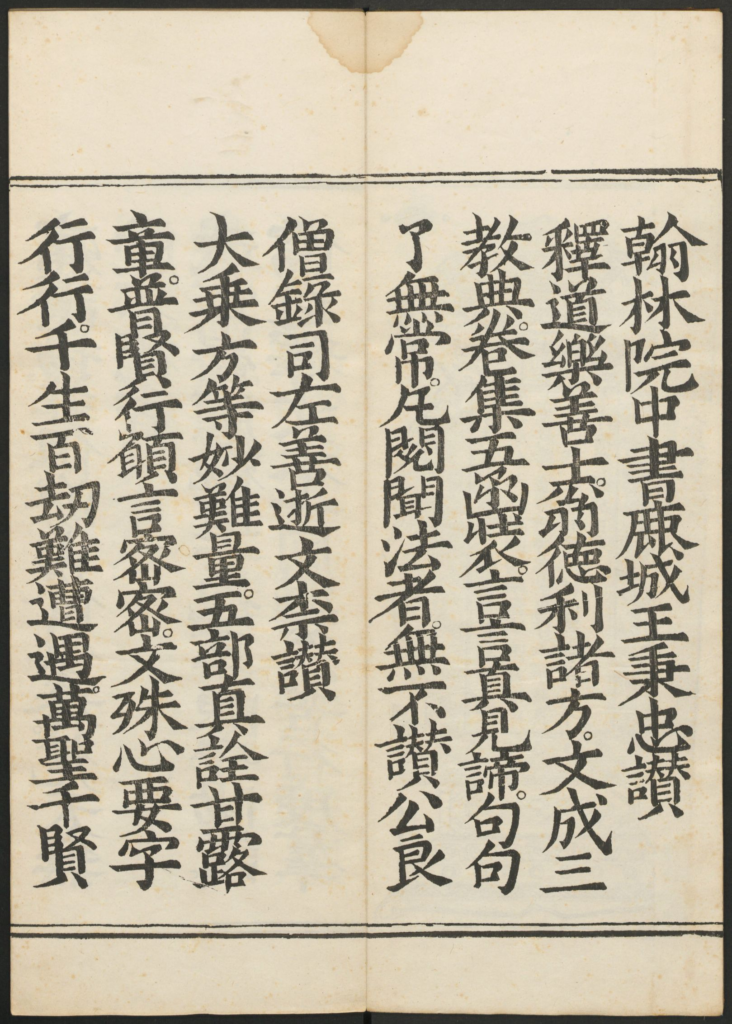 翰林院中書鹿城王秉忠讃
釋道樂善士。翁德利諸方。文成三
教典。卷集五函裝。言言真見諦。句句
了無常。凡閱聞法者。無不讃公良
僧錄司左善逝文柰讃
大乘方等妙難量。五部真詮甘露
童。普賢行願言密密。文殊心要字
行行。千生百劫難遭遇。萬聖千賢